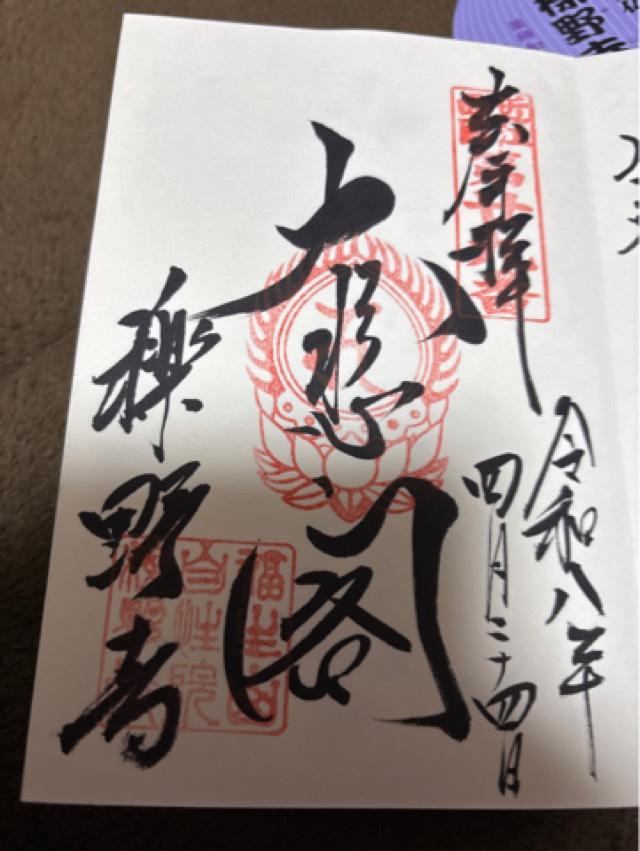 奉拝
令和八年
四月二十四日
大悲閣
櫟野寺
福生山
自性院
櫟野寺
櫟野寺